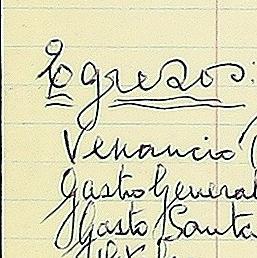 Egresos:
Venancio (
Gasto General
Gasto Santa